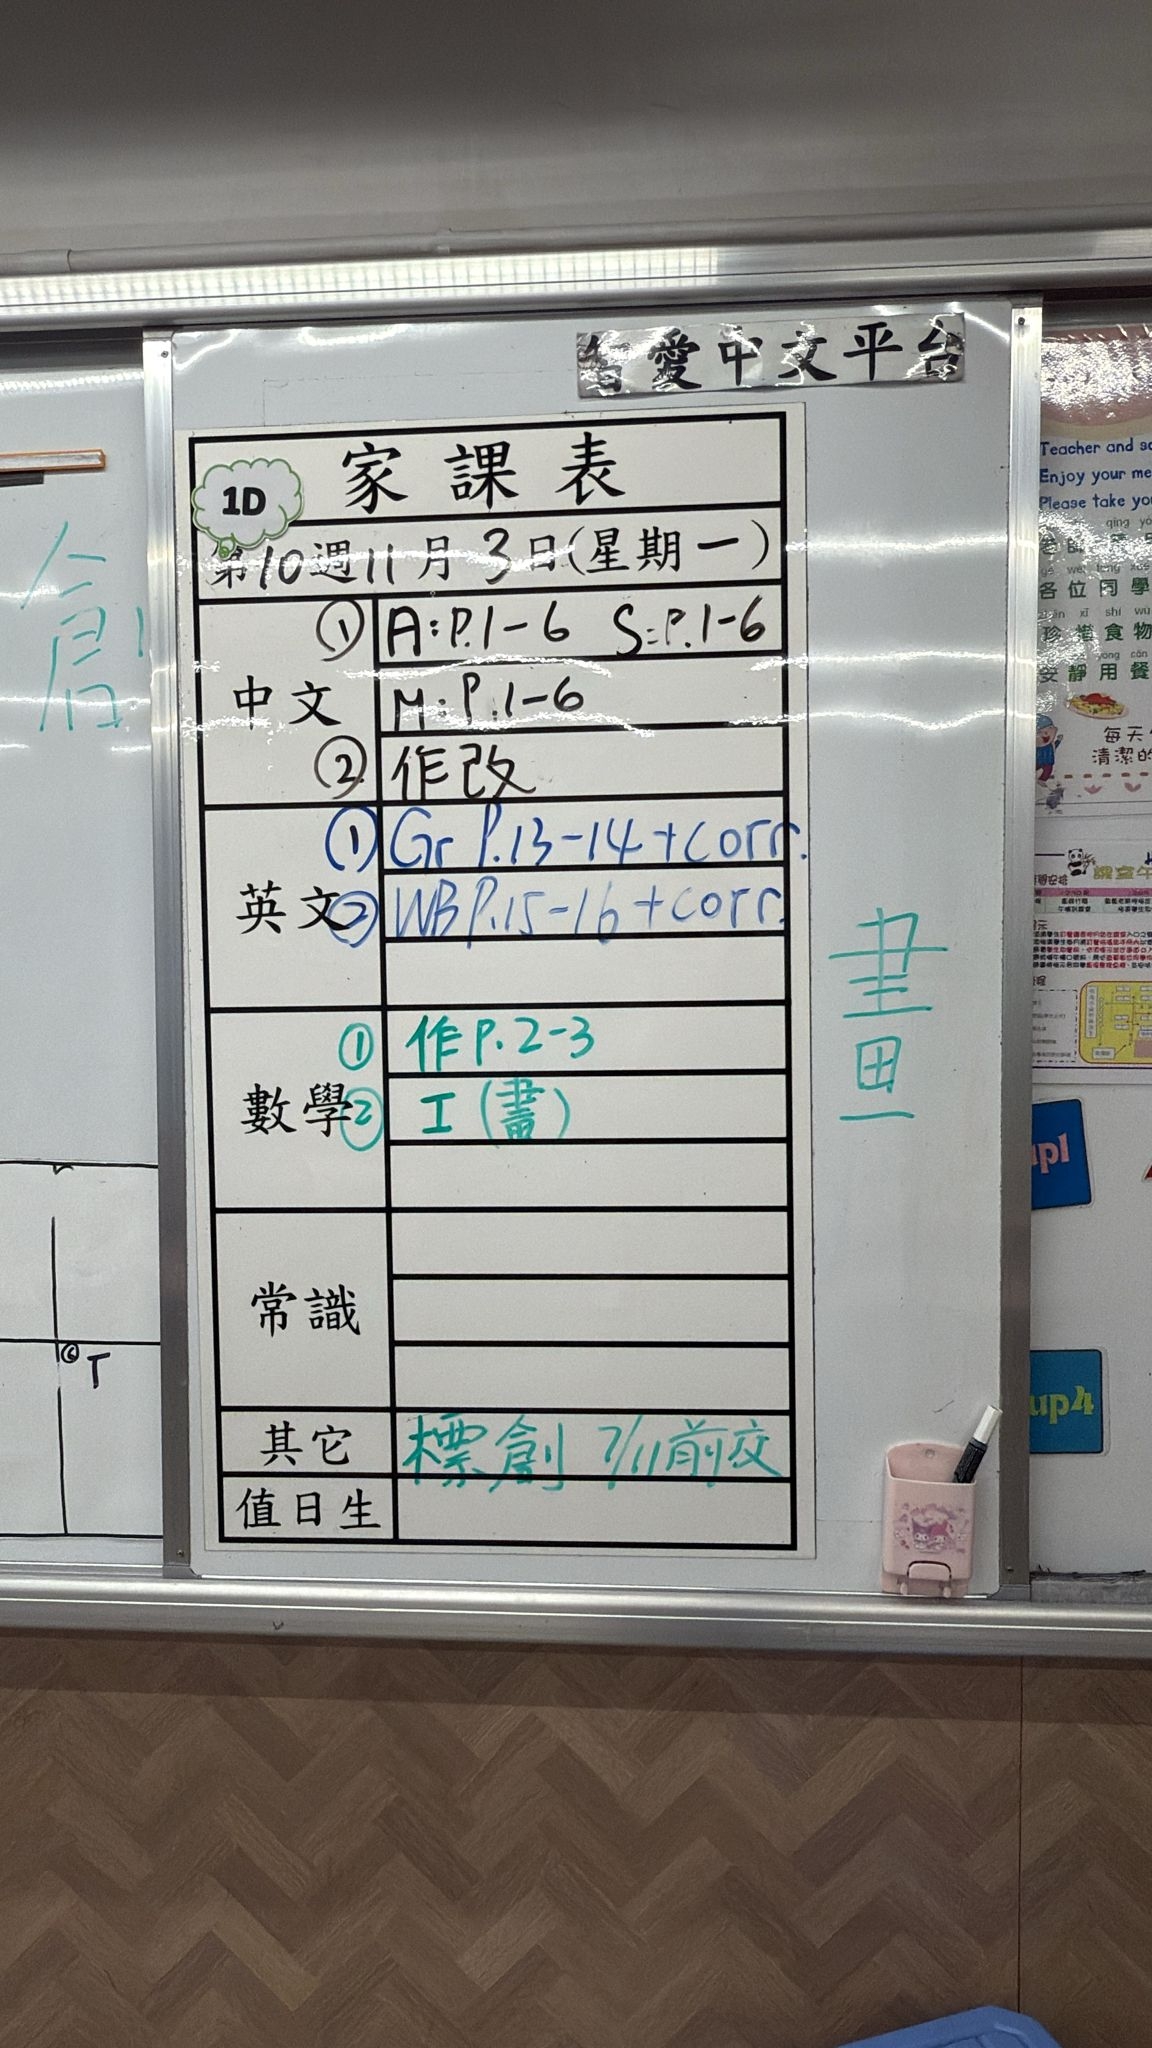 智愛中文平台
家課表
1D
第10週11月3日(星期一)
中文
① A:P.1-6 S:P.1-6
M:P.1-6
② 作改
英文
① Gr P.13-14+corr.
② WB P.15-16+corr.
數學
① 作P.2-3
② I(畫)
常識
其它
標創 7/11前交
值日生
創
畫
⑥ T
Teacher and
Enjoy your me
Please take you
各位同學
珍惜食物
安靜用餐
每天
清潔的
up1
up4